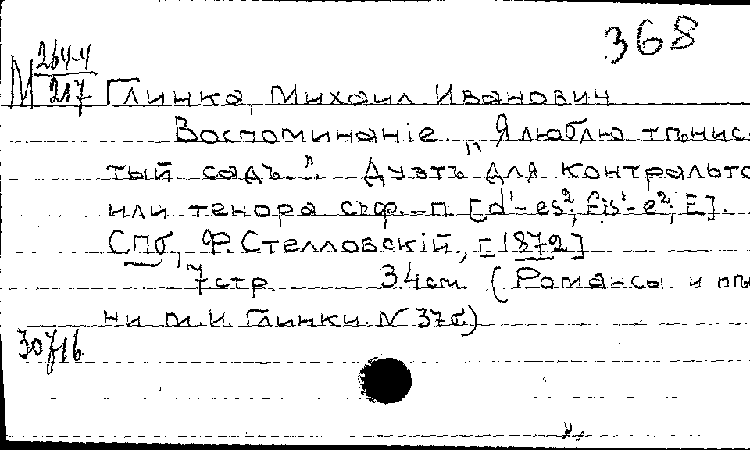 368
М 264-4
217 Глинка, Михаил Иванович
Воспоминаніе. „Я люблю тѣнис-
тый садъ..." Дуэтъ для контральто
или тенора съ ф.-п. [d'-es²; fis'-e²; E].
СПб, Ф. Стелловскій, [1872]
7 стр. 34 см. (Романсы и пѣ
ни М.И. Глинки. N 37б.)
30716